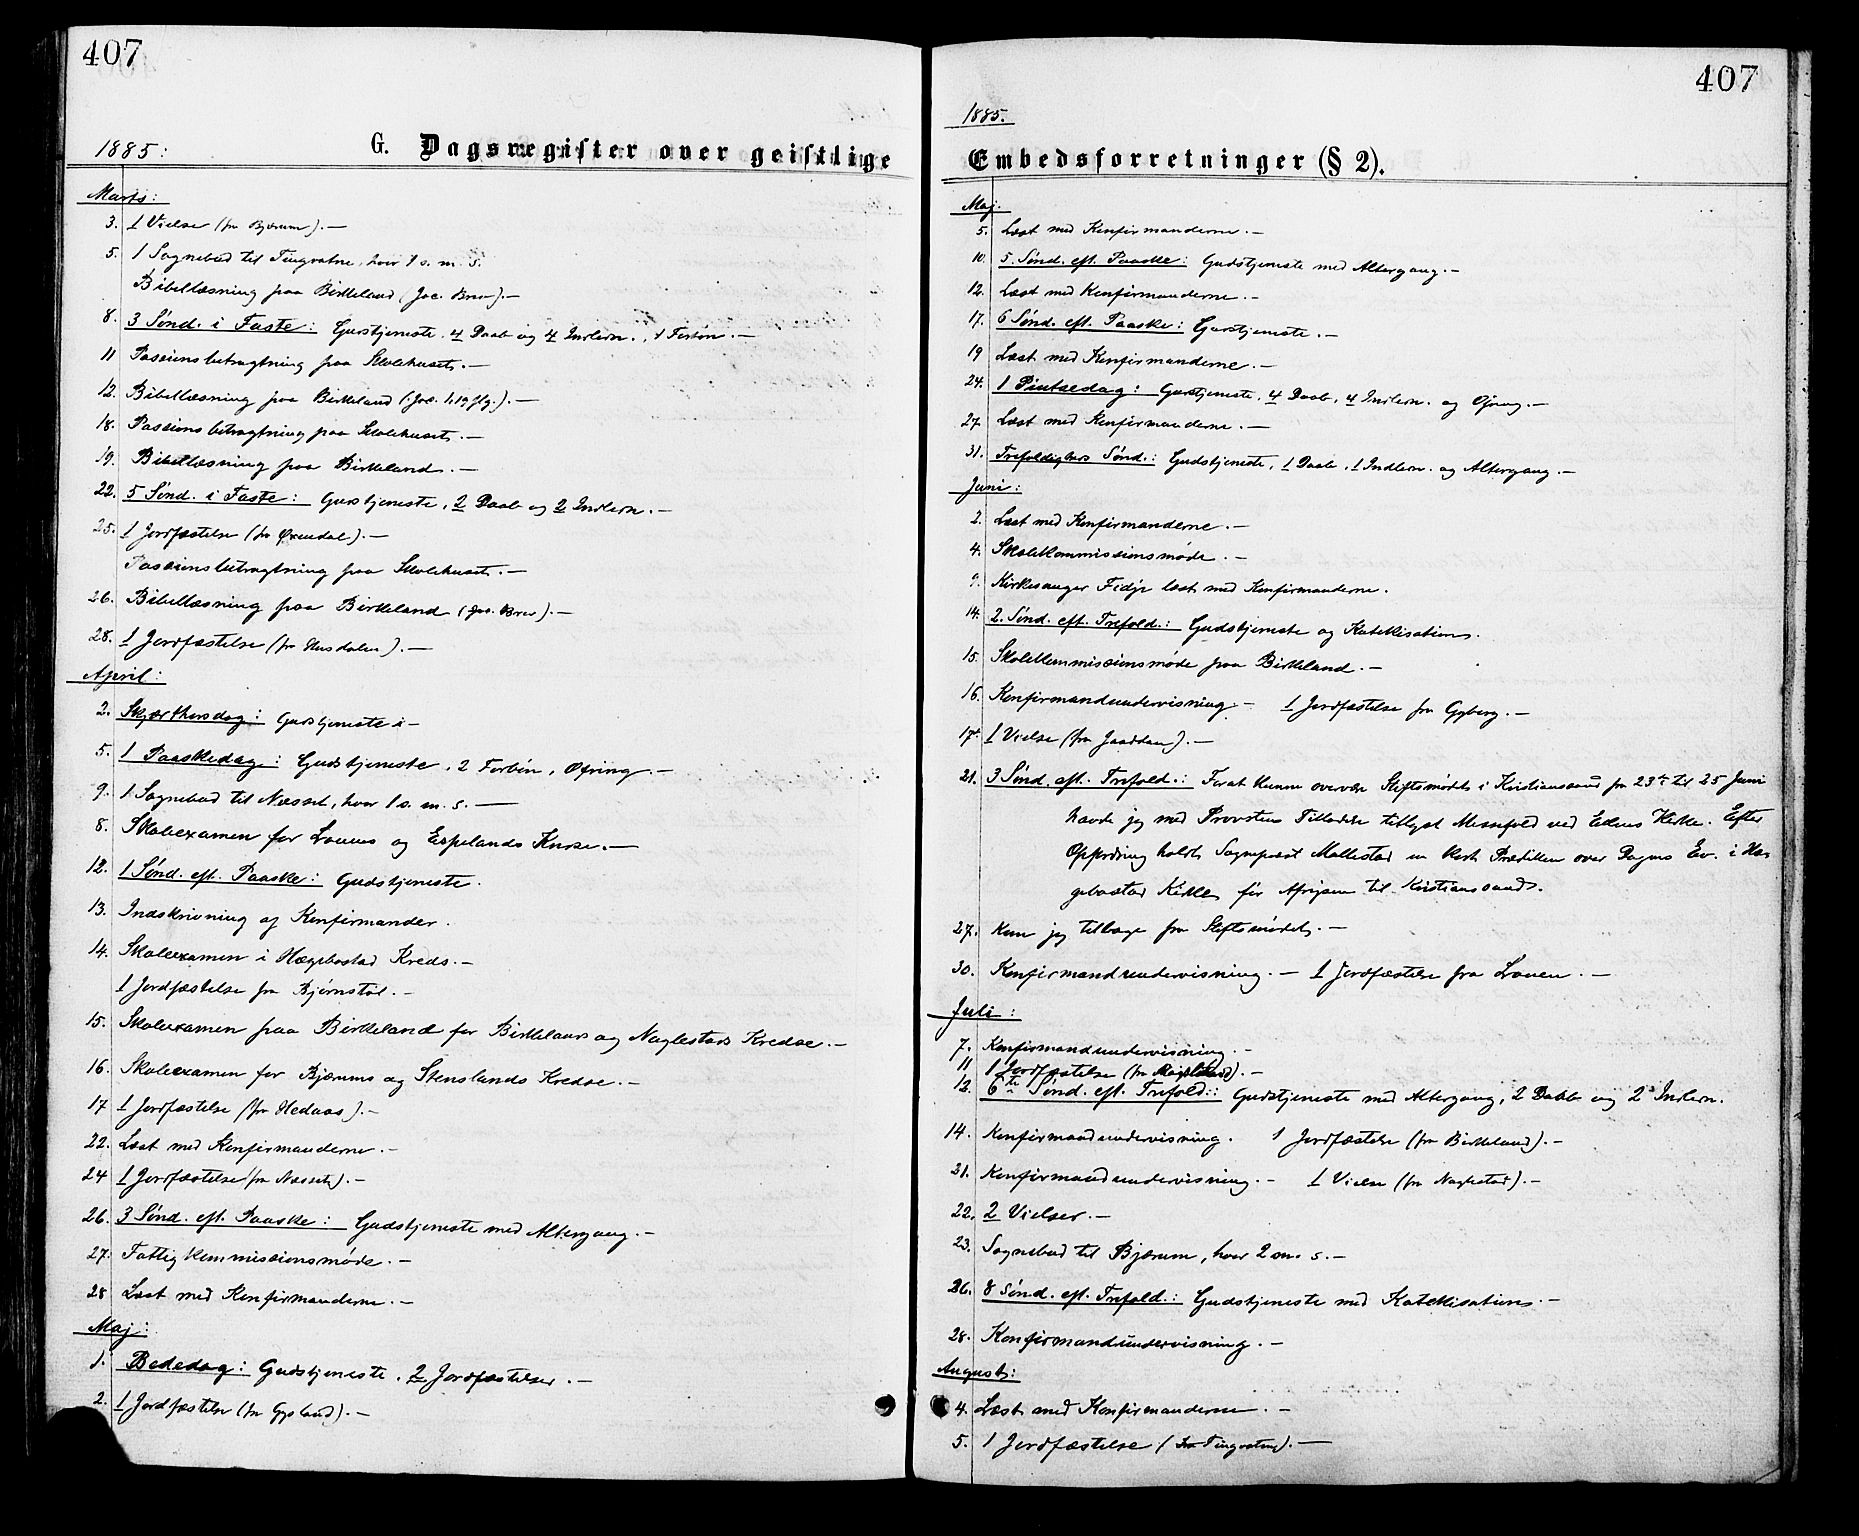 407
1885:
G. Dagsregister over geistlige
Marts:
3. 1 Vielse (fra Bjærum). —
5. 1 Sognebud til Tingvatne, hvor 1 s. m. s.
Bibellæsning paa Birkeland (Jac. Brev). —
8. 3 Sønd. i Faste: Gudstjeneste. 4 Daab og 4 Indlem., 1 Forløn. —
11 Passionsbetragtning paa Skolehuset. —
12. Bibellæsning paa Birkeland (Jac. 1,19 flg.). —
18. Passionsbetragtning paa Skolehuset. —
19. Bibellæsning paa Birkeland. —
22. 5 Sønd. i Faste: Gudstjeneste, 2 Daab og 2 Indlem. —
25. 1 Jordfæstelse (fra Øxendal). —
Passionsbetragtning paa Skolehuset. —
26. Bibellæsning paa Birkeland (Jac. Brev). —
28. 1 Jordfæstelse (fra Husdalen). —
April:
2. Skjærthorsdag: Gudstjeneste. —
5. 1 Paaskedag: Gudstjeneste, 2 Forbøn, Ofring. —
9. 1 Sognebud til Næsset, hvor 1 s. m. s. —
8. Skoleexamen for Lauens og Espelands Kredse. —
12. 1 Sønd. eft. Paaske: Gudstjeneste.
13. Indskrivning af Konfirmander.
14. Skoleexamen i Hægebostad Kreds. —
1 Jordfæstelse fra Bjørnstøl. —
15. Skoleexamen paa Birkeland for Birkelands og Naglestads Kredse. —
16. Skoleexamen for Bjærums og Stenslands Kredse. —
17 1 Jordfæstelse (fra Hedaas). —
22. Læst med Konfirmanderne. —
24 1 Jordfæstelse (fra Næsset). —
26. 3 Sønd. eft. Paaske: Gudstjeneste med Altergang. —
27. Fattigkommissionsmøde. —
28 Læst med Konfirmanderne. —
Maj:
1. Bededag: Gudstjeneste. 2 Jordfæstelser. —
2. 1 Jordfæstelse (fra Gysland). —
407
1885.
Embedsforretninger (§ 2).
Maj.
5. Læst med Konfirmanderne. —
10. 5. Sønd. eft. Paaske: Gudstjeneste med Altergang. —
12. Læst med Konfirmanderne. —
17. 6 Sønd. eft. Paaske: Gudstjeneste. —
19 Læst med Konfirmanderne. —
24. 1 Pintsedag: Gudstjeneste, 4 Daab, 4 Indlem. og Ofring. —
27. Læst med Konfirmanderne. —
31. Trefoldigheds Sønd.: Gudstjeneste, 1 Daab, 1 Indlem. og Altergang. —
Juni:
2. Læst med Konfirmanderne. —
4. Skolekommissionsmøde. —
9. Kirkesanger Fidje læst med Konfirmanderne.
14. 2. Sønd. eft. Trefold.: Gudstjeneste og Katekisation.
15. Skolekommissionsmøde paa Birkeland. —
16. Konfirmandundervisning. — 1 Jordfæstelse fra Gyberg. —
17. 1 Vielse (fra Jaaddan). —
21. 3 Sønd. eft. Trefold.: For at kunne overvære Stiftsmødet i Kristianssand fra 23de til 25 Juni
havde jeg med Provstens Tilladelse tillyst Messefald ved Eikens Kirke. Efter
Opfordring holdt Sogneprest Mollestad en kort Prædiken over Dagens Ev. i Hæ-
gebostad Kirke, før Afrejsen til Kristianssand.
27. Kom jeg tilbage fra Stiftsmødet. —
30. Konfirmandundervisning. — 1 Jordfæstelse fra Lauen. —
Juli:
7. Konfirmandundervisning. —
11 1 Jordfæstelse (fra). —
12. 6te Sønd. eft. Trefold.: Gudstjeneste med Altergang, 2 Daab og 2 Indlem.
14. Konfirmandundervisning. 1 Jordfæstelse (fra Birkeland). —
21. Konfirmandundervisning. — 1 Vielse (fra Naglestad). —
22. 2 Vielser. —
23. Sognebud til Bjærum, hvor 2 m. s. —
26. 8 Sønd. eft. Trefold.: Gudstjeneste med Katekisation. —
28. Konfirmandundervisning. —
August:
4. Læst med Konfirmanderne. —
5. 1 Jordfæstelse (fra Tingvatne). —